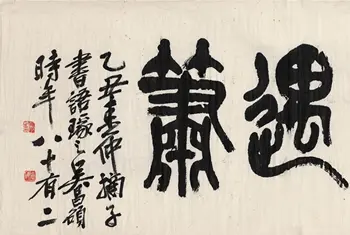 遇簫
乙丑春仲子
書語之吳昌碩
時年八十有二